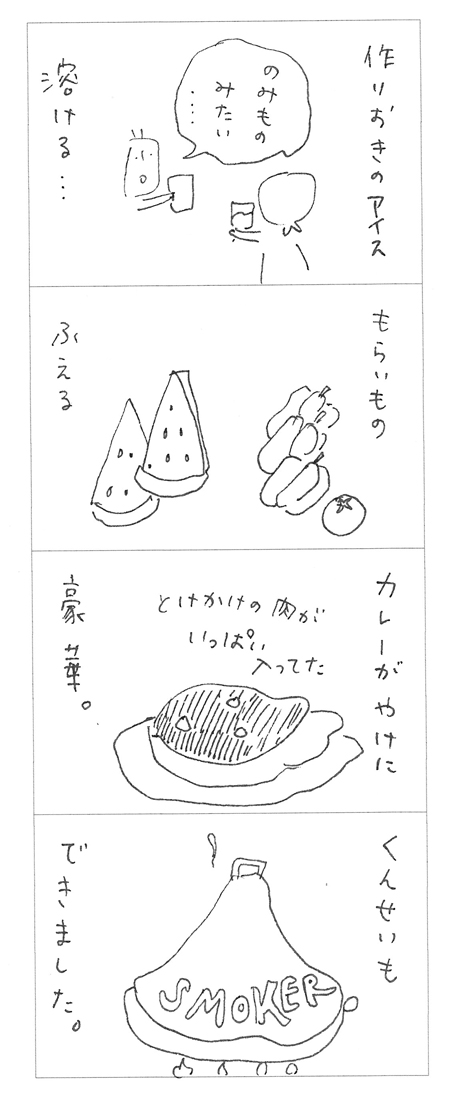 作りおきのアイス
のみもの
みたい
……
溶ける…
もらいもの
ふえる
カレーがやけに
とけかけの肉が
いっぱい
入ってた
豪華。
くんせいも
SMOKER
できました。